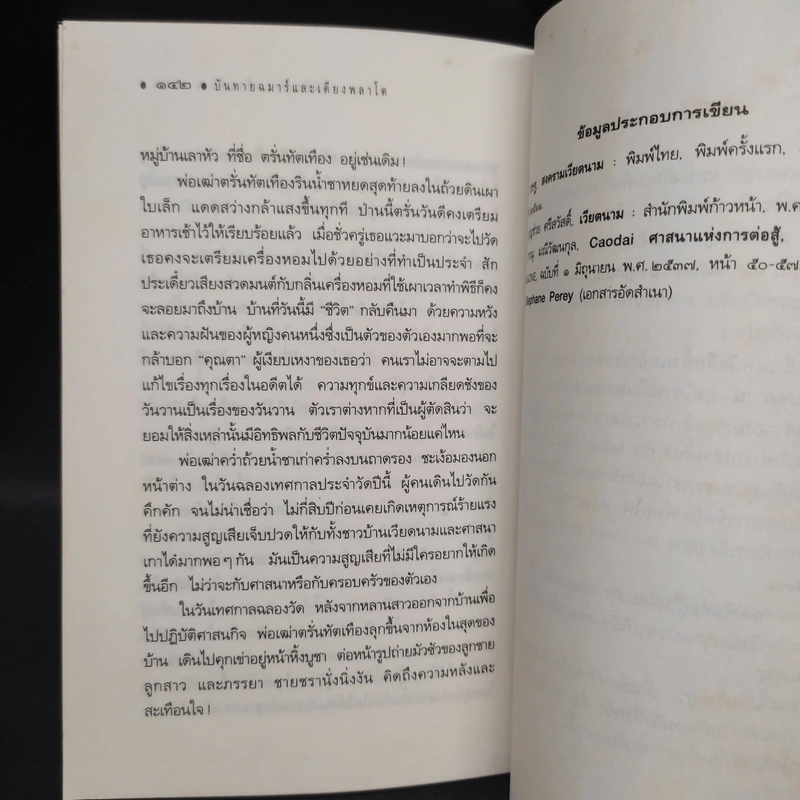 • ๑๔๒ • บันทายฉมาร์และเดียงพลาโต
หมู่บ้านเลาหัว ที่ชื่อ ตรั่นทัตเทือง อยู่เช่นเดิม !
พ่อเฒ่าตรั่นทัตเทืองรินน้ำชาหยดสุดท้ายลงในถ้วยดินเผา
ใบเล็ก แดดสว่างกล้าแสงขึ้นทุกที ป่านนี้ตรั่นวันดีคงเตรียม
อาหารเช้าไว้ให้เรียบร้อยแล้ว เมื่อชั่วครู่เธอแวะมาบอกว่าจะไปวัด
เธอคงจะเตรียมเครื่องหอมไปด้วยอย่างที่ทำเป็นประจำ สัก
ประเดี๋ยวเสียงสวดมนต์กับกลิ่นเครื่องหอมที่ใช้เผาเวลาทำพิธีก็คง
จะลอยมาถึงบ้าน บ้านที่วันนี้มี "ชีวิต" กลับคืนมา ด้วยความหวัง
และความฝันของผู้หญิงคนหนึ่งซึ่งเป็นตัวของตัวเองมากพอที่จะ
กล้าบอก "คุณตา" ผู้เงียบเหงาของเธอว่า คนเราไม่อาจจะตามไป
แก้ไขเรื่องทุกเรื่องในอดีตได้ ความทุกข์และความเกลียดชังของ
วันวานเป็นเรื่องของวันวาน ตัวเราต่างหากที่เป็นผู้ตัดสินว่า จะ
ยอมให้สิ่งเหล่านั้นมีอิทธิพลกับชีวิตปัจจุบันมากน้อยแค่ไหน
พ่อเฒ่าคว่ำถ้วยน้ำชาเก่าคร่ำลงบนถาดรอง ชะเง้อมองนอก
หน้าต่าง ในวันฉลองเทศกาลประจำวัดปีนี้ ผู้คนเดินไปวัดกัน
คึกคัก จนไม่น่าเชื่อว่า ไม่กี่สิบปีก่อนเคยเกิดเหตุการณ์ร้ายแรง
ที่ยังความสูญเสียเจ็บปวดให้กับทั้งชาวบ้านเวียดนามและศาสนา
เกาได๋มากพอ ๆ กัน มันเป็นความสูญเสียที่ไม่มีใครอยากให้เกิด
ขึ้นอีก ไม่ว่าจะกับศาสนาหรือกับครอบครัวของตัวเอง
ในวันเทศกาลฉลองวัด หลังจากหลานสาวออกจากบ้านเพื่อ
ไปปฏิบัติศาสนกิจ พ่อเฒ่าตรั่นทัตเทืองลุกขึ้นจากห้องในสุดของ
บ้าน เดินไปคุกเข่าอยู่หน้าหิ้งบูชา ต่อหน้ารูปถ่ายมัวซัวของลูกชาย
ลูกสาว และภรรยา ชายชรานั่งนิ่งงัน คิดถึงความหลังและ
สะเทือนใจ !
ข้อมูลประกอบการเขียน
สงครามเวียดนาม : พิมพ์ไทย, พิมพ์ครั้งแรก,
ศรีสวัสดิ์, เวียดนาม : สำนักพิมพ์ก้าวหน้า, พ.ศ
มณีวัฒนกุล, Caodai ศาสนาแห่งการต่อสู้,
ฉบับที่ ๑ มิถุนายน พ.ศ. ๒๕๓๗, หน้า ๕๐-๕๗
Perey (เอกสารอัดสำเนา)